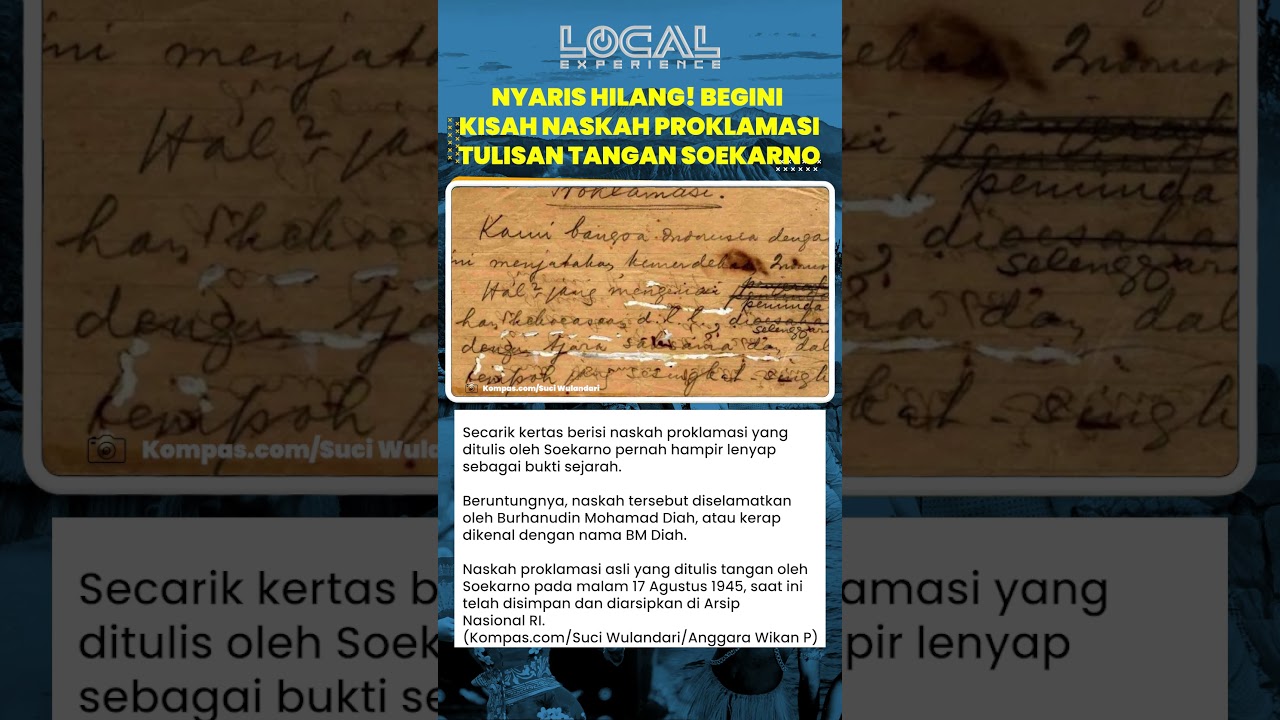 LOCAL
EXPERIENCE
NYARIS HILANG! BEGINI
KISAH NASKAH PROKLAMASI
TULISAN TANGAN SOEKARNO
Proklamasi.
Kami bangsa Indonesia denga
ni menjatakan kemerdekaan Indones
Hal² jang mengenai
peminda
han kekoeasaan d.l.l., dioesaha
selenggara
dengan tjara saksama dan dal
tempoh jang sesingkat-singk
Kompas.com/Suci Wulandari
Secarik kertas berisi naskah proklamasi yang
ditulis oleh Soekarno pernah hampir lenyap
sebagai bukti sejarah.
Beruntungnya, naskah tersebut diselamatkan
oleh Burhanudin Mohamad Diah, atau kerap
dikenal dengan nama BM Diah.
Naskah proklamasi asli yang ditulis tangan oleh
Soekarno pada malam 17 Agustus 1945, saat ini
telah disimpan dan diarsipkan di Arsip
Nasional RI.
(Kompas.com/Suci Wulandari/Anggara Wikan P)